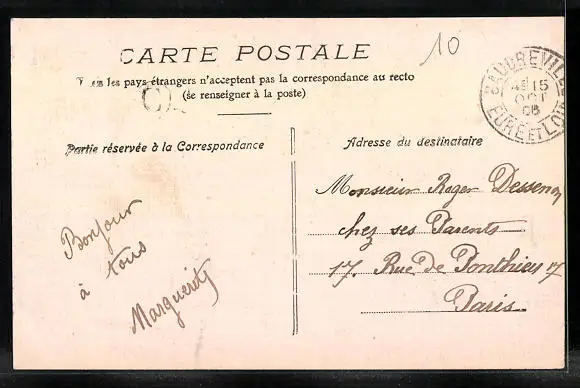 10
CARTE POSTALE
les pays étrangers n'acceptent pas la correspondance au recto
(se renseigner à la poste)
BAUDREVILLE
15
OCT
06
EURE ET LOIR
Partie réservée à la Correspondance
Adresse du destinataire
Bonjour
à tous
Marguerite
Monsieur Roger Dessenon
chez ses Parents
17. Rue de Ponthieu 17
Paris